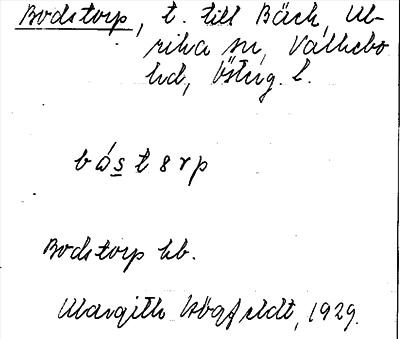 Bodstorp, t. till Bäck, Ul-
rika sn, Valkebo
hd, Östérg. l.
b ó s t 8 r p
Bodstorp hb.
Margith Högfeldt, 1929.